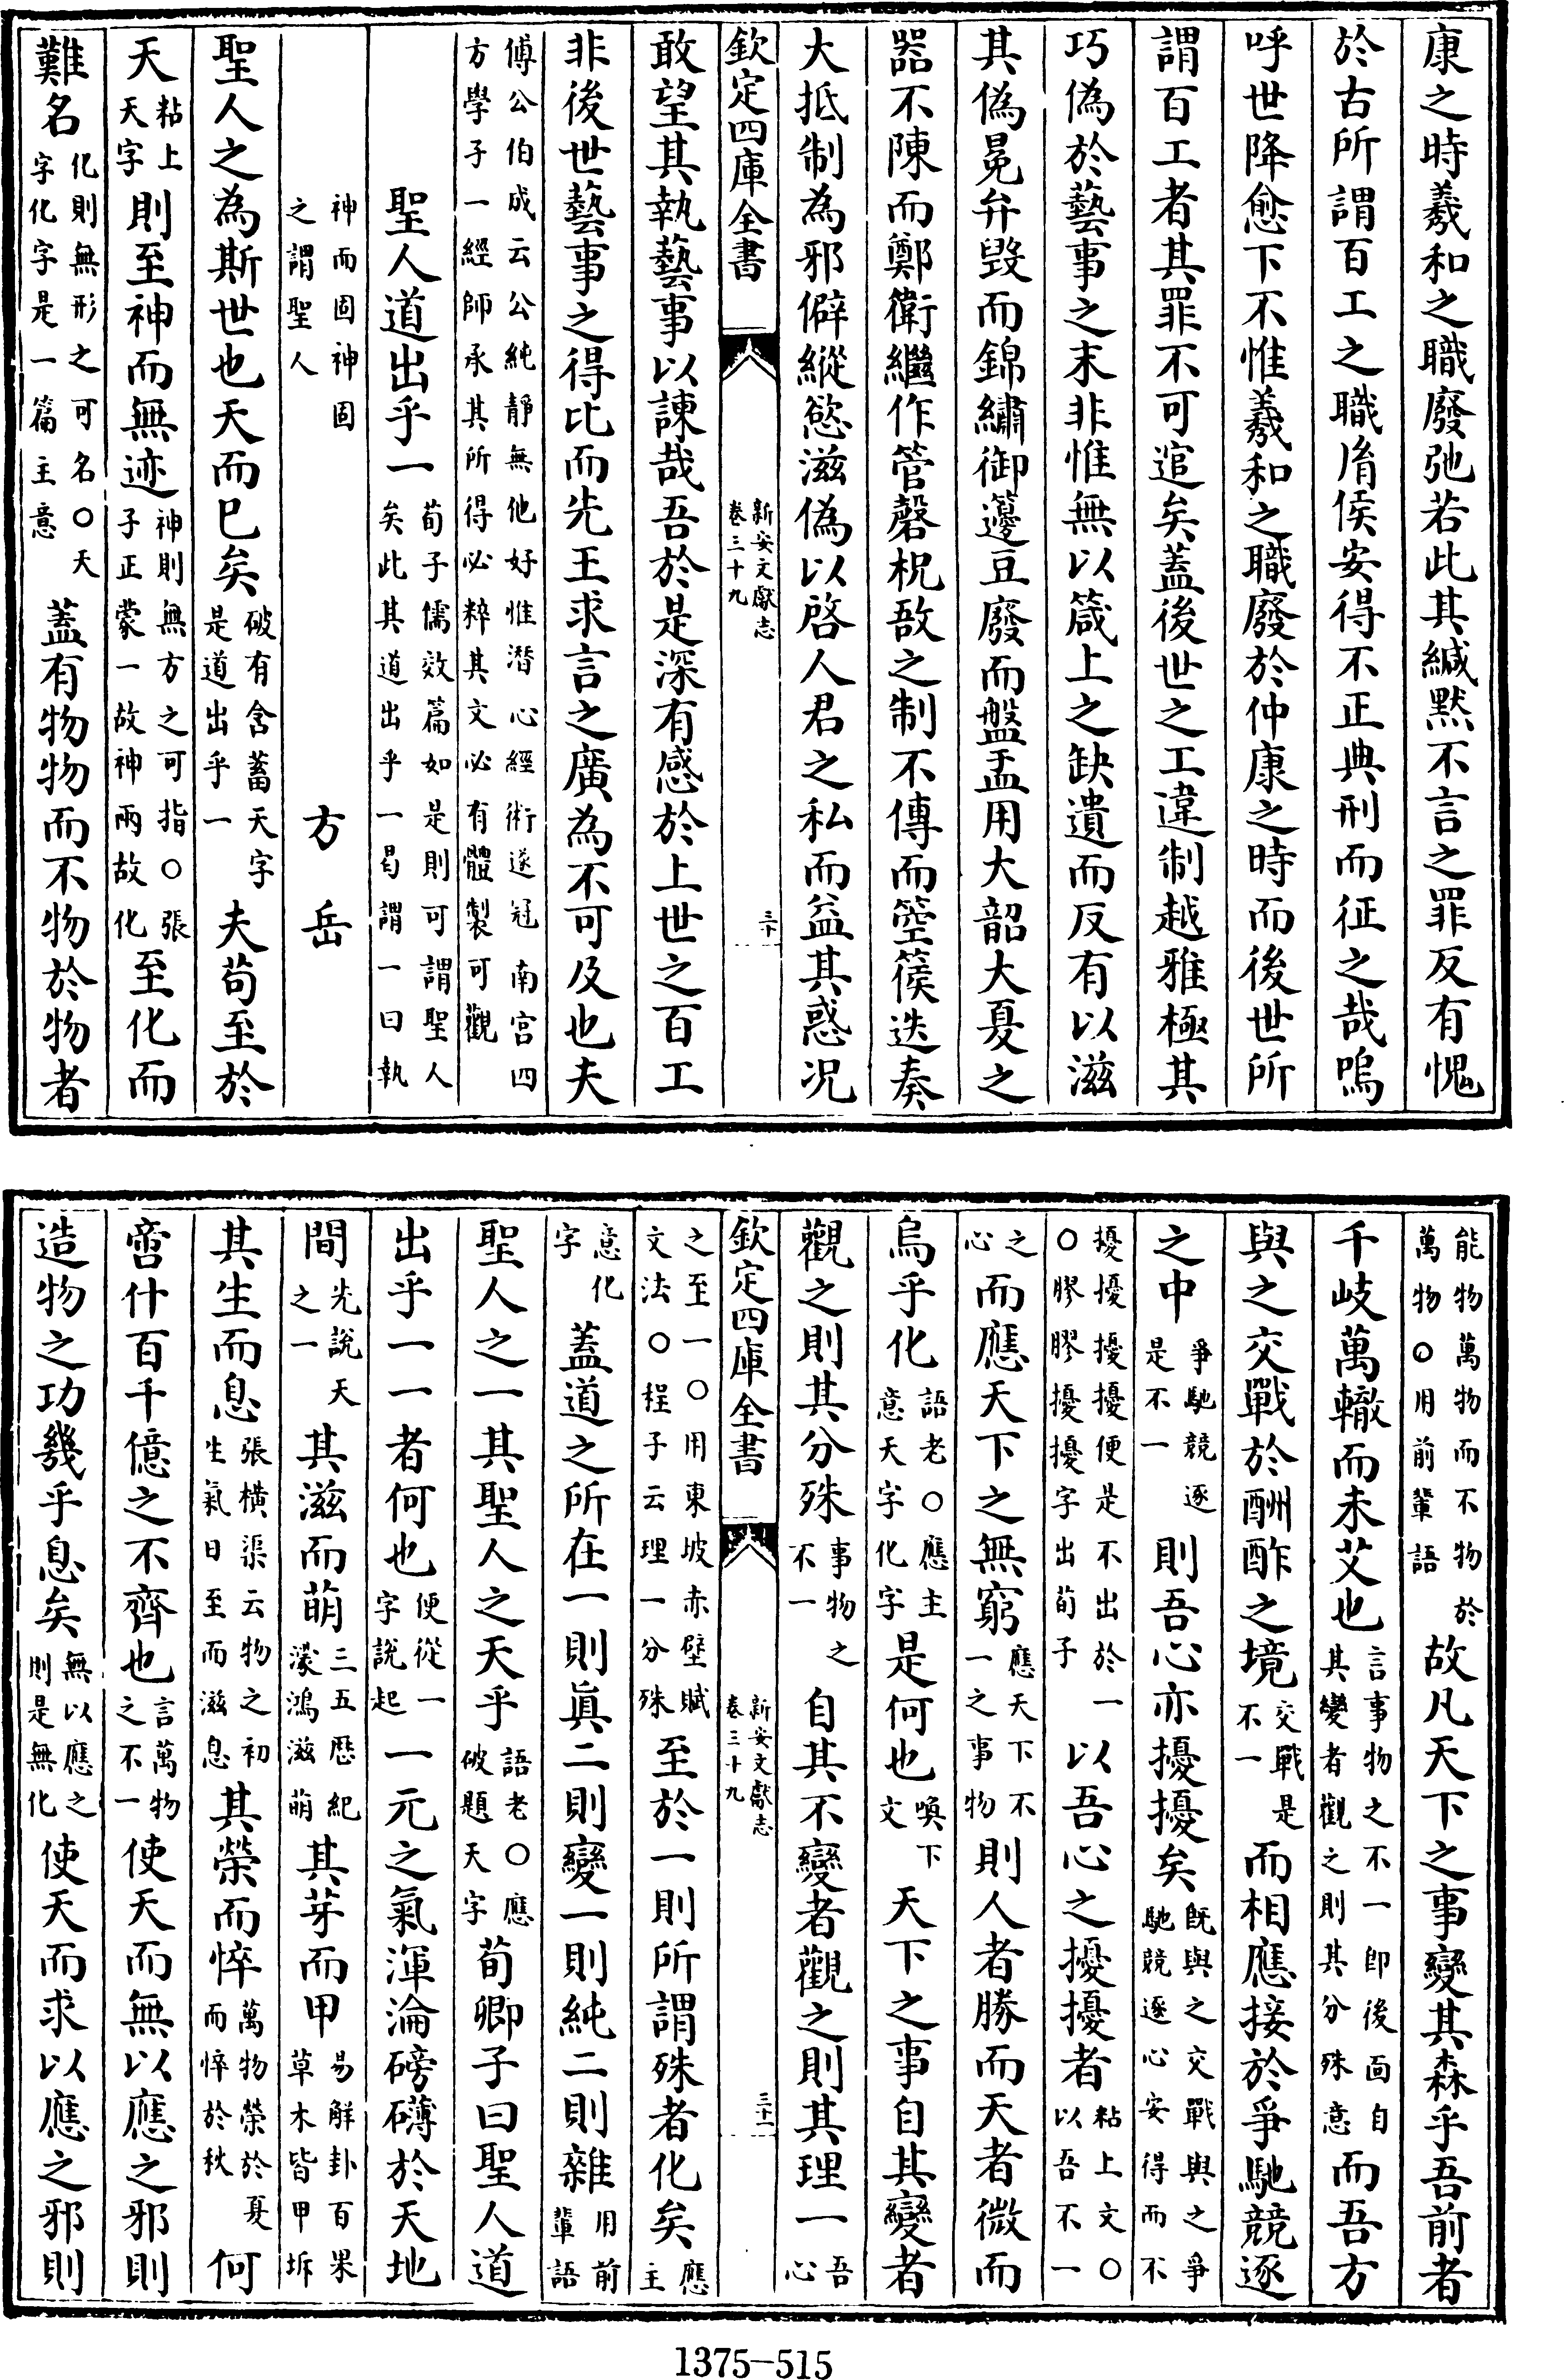 康之時羲和之職廢弛若此其緘黙不言之罪反有愧
於古所謂百工之職胤侯安得不正典刑而征之哉嗚
呼世降愈下不惟羲和之職廢於仲康之時而後世所
謂百工者其罪不可逭矣蓋後世之工違制越雅極其
巧偽於藝事之末非惟無以箴上之缺遺而反有以滋
其偽冕弁毀而錦繡御籩豆廢而盤盂用大韶大夏之
器不陳而鄭衛繼作管磬柷敔之制不傳而箜篌迭奏
大抵制為邪僻縱慾滋偽以啓人君之私而益其惑况
欽定四庫全書 新安文獻志 卷三十九 三十
敢望其執藝事以諫哉吾於是深有感於上世之百工
非後世藝事之得比而先王求言之廣為不可及也夫
傅公伯成云公純靜無他好惟潜心經術遂冠南宫四
方學子一經師承其所得必粹其文必有體製可觀
聖人道出乎一荀子儒效篇如是則可謂聖人
矣此其道出乎一曷謂一曰執
神而固神固
之謂聖人 方岳
聖人之為斯世也天而巳矣破有含蓄天字
是道出乎一夫苟至於
天粘上
天字則至神而無迹神則無方之可指○張
子正蒙一故神兩故化至化而
難名化則無形之可名○天
字化字是一篇主意蓋有物物而不物於物者
能物萬物而不物於
萬物○用前輩語故凡天下之事變其森乎吾前者
千岐萬轍而未艾也言事物之不一卽後面自
其變者觀之則其分殊意而吾方
與之交戰於酬酢之境交戰是
不一而相應接於爭馳競逐
之中爭馳競逐
是不一則吾心亦擾擾矣既與之交戰與之爭
馳競逐心安得而不
擾擾擾擾便是不出於一
○膠膠擾擾字出荀子以吾心之擾擾者粘上文○
以吾不一
之
心而應天下之無窮應天下不
一之事物則人者勝而天者微而
烏乎化語老○應主
意天字化字是何也喚下
文天下之事自其變者
觀之則其分殊事物之
不一自其不變者觀之則其理一吾
心
欽定四庫全書 新安文獻志 卷三十九 三十一
之至一○用東坡赤壁賦
文法○程子云理一分殊至於一則所謂殊者化矣應
主
意化
字蓋道之所在一則眞二則變一則純二則雜用前
輩語
聖人之一其聖人之天乎語老○應
破題天字荀卿子曰聖人道
出乎一一者何也便從一
字說起一元之氣渾淪磅礴於天地
間先說天
之一其滋而萌三五厯紀
濛鴻滋萌其芽而甲易解卦百果
草木皆甲坼
其生而息張横渠云物之初
生氣日至而滋息其榮而悴萬物榮於夏
而悴於秋何
啻什百千億之不齊也言萬物
之不一使天而無以應之邪則
造物之功幾乎息矣無以應之
則是無化使天而求以應之邪則
1375-515